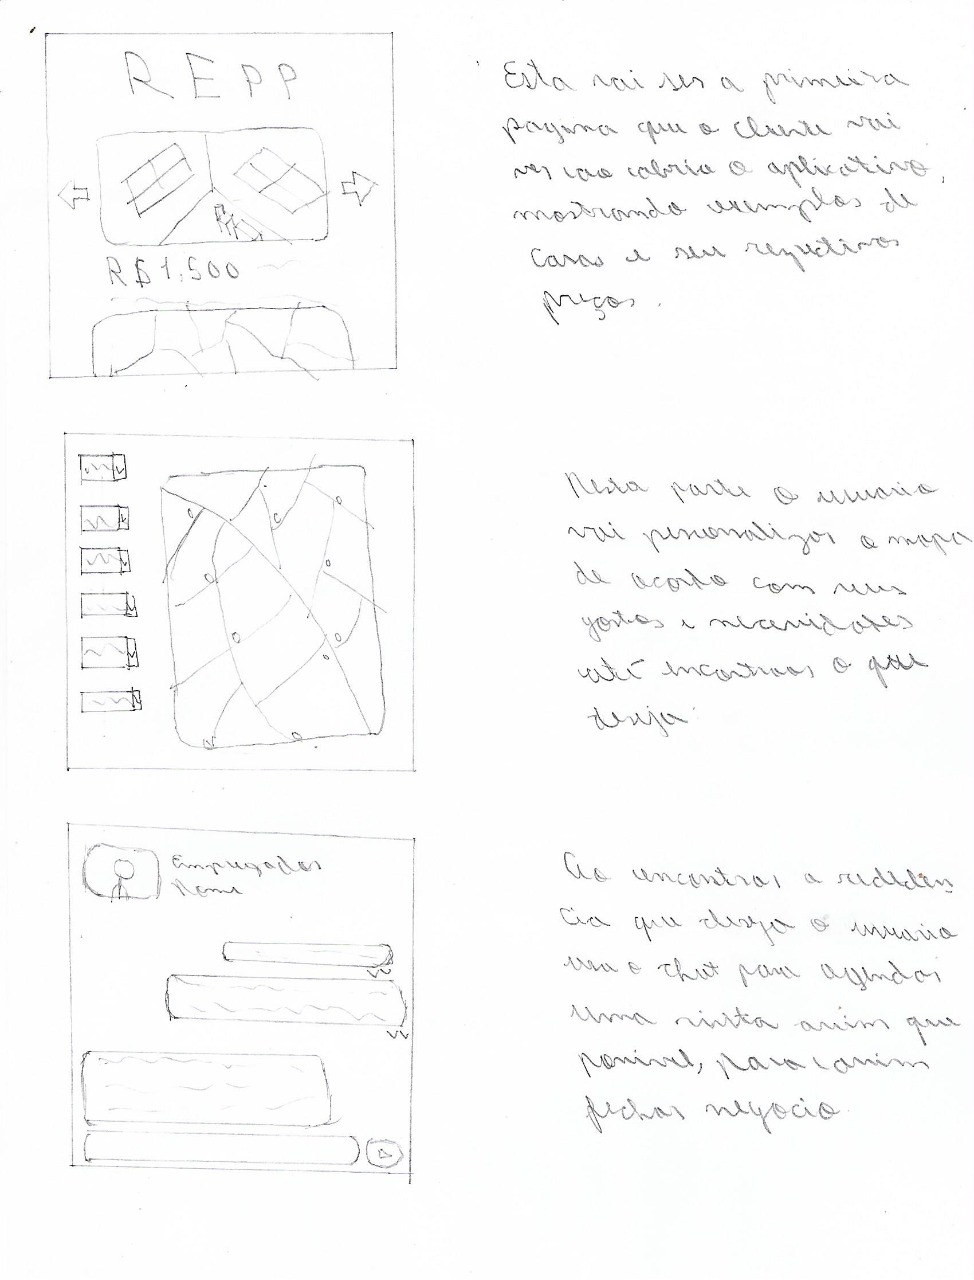 REPP
R$1.500
Esta vai ser a primeira
pagina que o cliente vai
ver cao cabrir o aplicativo,
mostrando exemplos de
casas e seu respectivos
preços.
Nesta parte o usuario
vai personalizar o mapa
de acordo com seus
gostos e necessidades
até encontrar o que
deseja
Empregados
Nome
Ao encontrar a rededên
cia que deseja o usuario
usa o chat para agendar
uma visita assim que
possivel, para cassim
fechar negocio